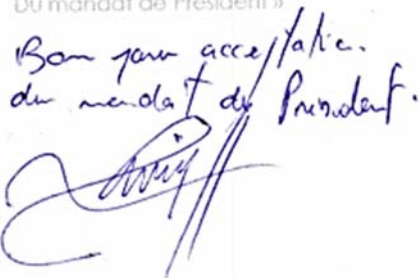 Du mandat de Président »
Bon pour acceptation
du mandat de Président.